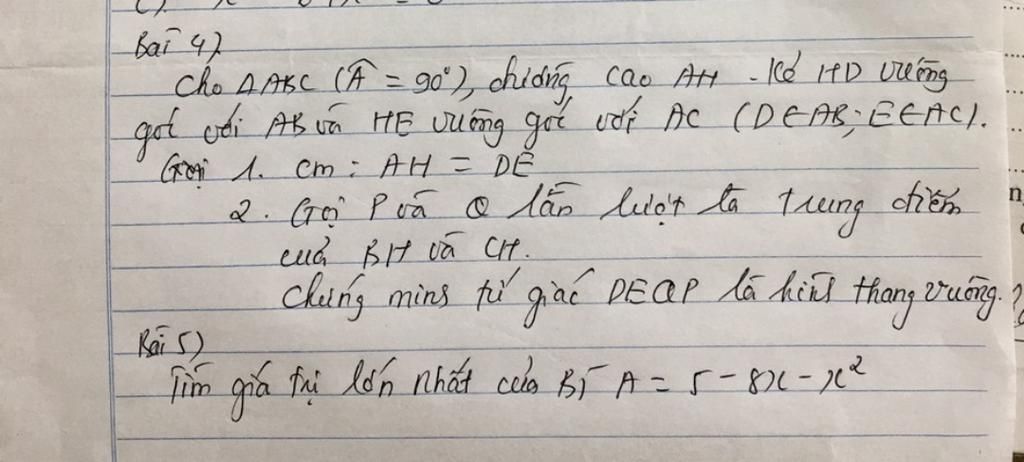 Bài 4)
Cho ΔABC (Â = 90°), đường cao AH - Kẻ HD vuông
góc với AB và HE vuông góc với AC (D∈AB; E∈AC).
1. Cm : AH = DE
2. Gọi P và Q lần lượt là trung điểm
của BH và CH.
Chứng minh tứ giác DEQP là hình thang vuông.
Bài 5)
Tìm giá trị lớn nhất của BT A = 5 - 8x - x²